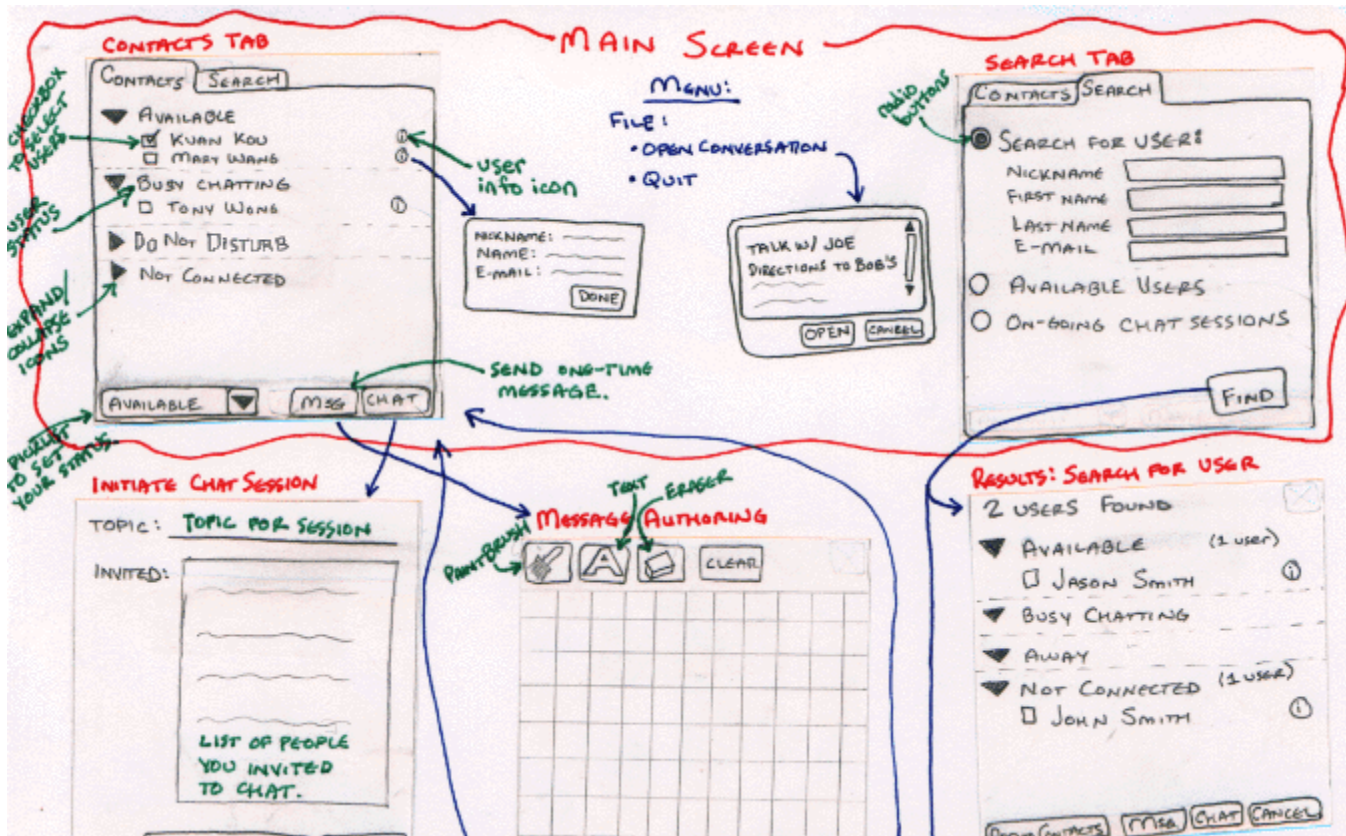 MAIN SCREEN
CONTACTS TAB
CONTACTS SEARCH
AVAILABLE
KUAN KOU
MARY WANG
BUSY CHATTING
TONY WONG
DO NOT DISTURB
NOT CONNECTED
AVAILABLE MSG CHAT
CHECKBOX
TO SELECT
USERS
USER
STATUS
EXPAND/
COLLAPSE
ICONS
PICKLIST
TO SET
YOUR STATUS.
USER
info icon
SEND ONE-TIME
MESSAGE.
NICKNAME:
NAME:
E-MAIL:
DONE
MENU:
FILE:
• OPEN CONVERSATION
• QUIT
TALK W/ JOE
DIRECTIONS TO BOB'S
OPEN CANCEL
SEARCH TAB
CONTACTS SEARCH
radio
buttons
SEARCH FOR USER:
NICKNAME
FIRST NAME
LAST NAME
E-MAIL
AVAILABLE USERS
ON-GOING CHAT SESSIONS
FIND
INITIATE CHAT SESSION
TOPIC: TOPIC FOR SESSION
INVITED:
LIST OF PEOPLE
YOU INVITED
TO CHAT.
MESSAGE AUTHORING
PAINTBRUSH
TEXT
ERASER
A
CLEAR
RESULTS: SEARCH FOR USER
2 USERS FOUND
AVAILABLE (1 USER)
JASON SMITH
BUSY CHATTING
AWAY
NOT CONNECTED (1 USER)
JOHN SMITH
CONTACTS MSG CHAT CANCEL